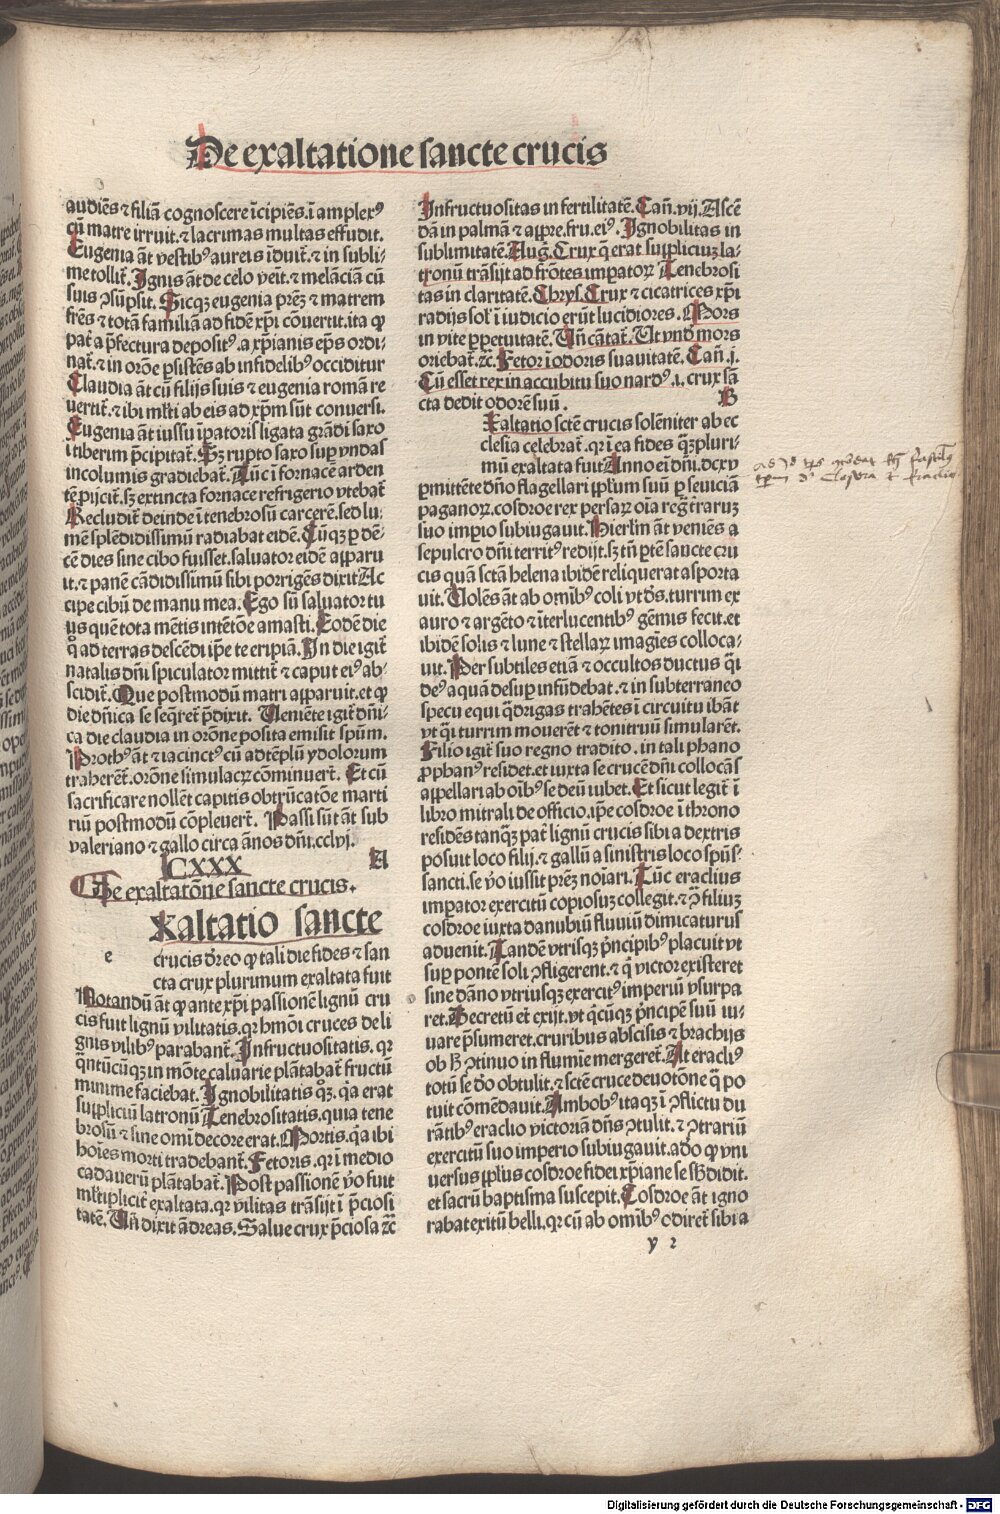 De exaltatione sancte crucis
audiēs ⁊ filiā cognoscere īcipiēs.ī amplexꝰ
cū matre irruit.⁊ lacrimas multas effudit.
Eugenia āt vestibꝰ aureis īduit̄.⁊ in subli-
me tollit̄. Ignis āt de celo veīt.⁊ melāciā cū
suis ꝯsūpsit. Sicqꝫ eugenia prēꝫ ⁊ matrem
frēs ⁊ totā familiā ad fidē xp̄i cōuertit.ita ꝙ
pat̄ a p̄fectura depositꝰ.a xp̄ianis ep̄s ordi-
nat̄.⁊ in orōe ꝑsistēs ab infidelibꝰ occiditur
Claudia āt cū filijs suis ⁊ eugenia romā re
uertit̄.⁊ ibi ml̄ti ab eis ad xp̄m sūt conuersi.
Eugenia āt iussu īpatoris ligata grādi saxo
ī tiberim p̄cipitat̄. Sꝫ rupto saxo suꝑ vndas
incolumis gradiebat̄. Tūc ī fornacē arden
tē ꝓijcit̄.sꝫ extincta fornace refrigerio vtebat̄
Recludit̄ deinde ī tenebrosū carcerē.sed lu-
mē splēdidissimū radiabat eidē. Cūqꝫ ꝑ dē-
cē dies sine cibo fuisset.saluator eidē apparu
it.⁊ panē cādidissimū sibi porrigēs dixit Ac
cipe cibū de manu mea. Ego sū saluator tu
us quē tota mētis intētōe amasti. Eodē die
q̊ ad terras descēdi ip̄e te eripiā. In die igit̄
natalis dn̄i spiculator mittit̄ ⁊ caput eiꝰ ab-
scidit̄. Que postmodū matri apparuit.et ꝙ
die dn̄ica se seq̄ret̄ p̄dixit. Ueniēte igit̄ dn̄i-
ca die claudia in orōne posita emisit spūm.
Prothꝰ āt ⁊ iacinctꝰ cū ad tēplū ydolorum
traherēt̄.orōne simulacꝝ cōminuert̄. Et cū
sacrificare nollēt capitis obtrūcatōe marti
riū postmodū cōpleuert̄. Passi sūt āt sub
valeriano ⁊ gallo circa ānos dn̄i.cclvj.
CXXX A
De exaltatōne sancte crucis.
Xaltatio sancte
e crucis dr̄ eo ꝙ tali die fides ⁊ san
cta crux plurimum exaltata fuit
Notandū āt ꝙ ante xp̄i passionē lignū cru
cis fuit lignū vilitatis.qr hmōi cruces de li
gnis vilibꝰ parabant̄. Infructuositatis.qr
q̄ntūcūqꝫ in mōte caluarie plātabat̄ fructū
minime faciebat. Ignobilitatis qꝫ.qa erat
suppliciū latronū Tenebrositatis.quia tene
brosū ⁊ sine omī decore erat. Mortis.qa ibi
hoīes morti tradebant̄. Fetoris.qr ī medio
cadauerū plātabat̄. Post passionē ṽo fuit
ml̄tiplicit̄ exaltata.qr vilitas trāsijt ī p̄ciosi
tatē. Un̄ dixit ādreas. Salue crux p̄ciosa ⁊c̄
Infructuositas in fertilitatē. Can̄.vij. Ascē
dā in palmā ⁊ appre.fru.eiꝰ. Ignobilitas in
sublimitatē. Aug. Crux q̄ erat suppliciuꝫ la-
tronū trāsijt ad frōtes imꝑatoꝝ Tenebrosi
tas in claritatē. Chrys. Crux ⁊ cicatrices xp̄i
radijs sol̄ ī iudicio erūt lucidiores. Mors
in vite ꝑpetuitatē. Un̄ cātat̄. Ut vnd mors
oriebat̄.⁊c̄. Fetor ī odoris suauitatē. Can̄.j.
Cū esset rex in accubitu suo nardꝰ.i.crux sā
cta dedit odorē suū. B
Exaltatio sctē crucis solēniter ab ec
clesia celebrat̄.qr ī ea fides qꝫ pluri-
mū exaltata fuit Anno ei dn̄i.dcxv
ꝑmittēte dn̄o flagellari pplm̄ suū ꝑ seuiciā
paganoꝝ.cosdroe rex persaꝝ oīa regꝭ traruꝫ
suo impio subiugauit. Hierlm̄ āt veniēs a
sepulcro dn̄i territꝰ redijt.sꝫ tn̄ ꝑtē sancte cru
cis quā sctā helena ibidē reliquerat asporta
uit. Uolēs āt ab omībꝰ coli vt dꝰs.turrim ex
auro ⁊ argēto ⁊ īterlucentibꝰ gēmis fecit.et
ibidē solis ⁊ lune ⁊ stellaꝝ imagīes colloca-
uit. Per subtiles etiā ⁊ occultos ductus q̄i
deꝰ aquā desuꝑ infūdebat.⁊ in subterraneo
specu equi q̄drigas trahētes ī circuitu ibāt
vt q̄i turrim mouerēt ⁊ tonitruū simularēt.
Filio igit̄ suo regno tradito.in tali phano
ꝓphanꝰ residet.et iuxta se crucē dn̄i collocās
appellari ab oībꝰ se deū iubet. Et sicut legit̄ ī
libro mitrali de officio.ip̄e cosdroe ī throno
residēs tanqꝫ pat̄ lignū crucis sibi a dextris
posuit loco filij.⁊ gallū a sinistris loco spūs
sancti.se ṽo iussit prēꝫ noīari. Tūc eraclius
imꝑator exercitū copiosuꝫ collegit.⁊ ꝯ filiuꝫ
cosdroe iuxta danubiū fluuiū dimicaturus
aduenit. Tandē vtrisqꝫ p̄ncipibꝰ placuit vt
suꝑ pontē soli ꝯfligerent.⁊ q̇ victor existeret
sine dāno vtriusqꝫ exercitꝰ imperiū vsurpa
ret. Decretū et̄ exijt.vt q̇cūqꝫ p̄ncipē suū iu-
uare p̄sumeret.cruribus abscisis ⁊ brachijs
ob ħ ꝯtinuo in flumīe mergeret̄. At eracliꝰ
totū se dō obtulit.⁊ sctē cruce deuotōne q̄ po
tuit cōmēdauit. Ambobꝰ itaqꝫ ī ꝯflictu du
rātibꝰ eraclio victoriā dn̄s ꝯtulit.⁊ ꝯtrariū
exercitū suo imperio subiugauit.adō ꝙ vni
uersus pplus cosdroe fidei xp̄iane se sb̄didit.
et sacrū baptisma suscepit. Cosdroe āt igno
rabat exitū belli.qr cū ab omībꝰ odiret̄ sibi a
y 2
Digitalisierung gefördert durch die Deutsche Forschungsgemeinschaft - DFG